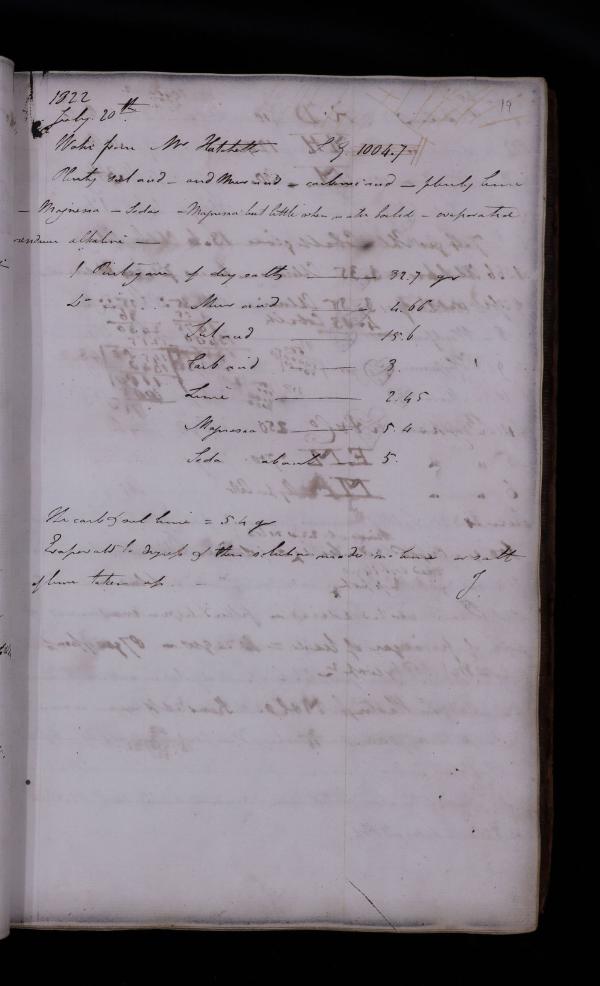 19
1822
July 20th
Water from Mr Hatchett S G 1004.7
Plenty sul acid - and Mur acid - carbonic acid - plenty lime
- Magnesia - Soda - Magnesia but little when water boiled - evaporated
residuum alkaline -
1 Pint gave of dry salts 32.7 grs
Do Mur acid 4.66
Sul acid 15.6
Carb acid 3.
Lime 2.45
Magnesia 5.4
Soda about 5.
The carb & sul lime = 5.4 gr
Evaporated to dryness & then solution made no lime or salt
of lime taken up